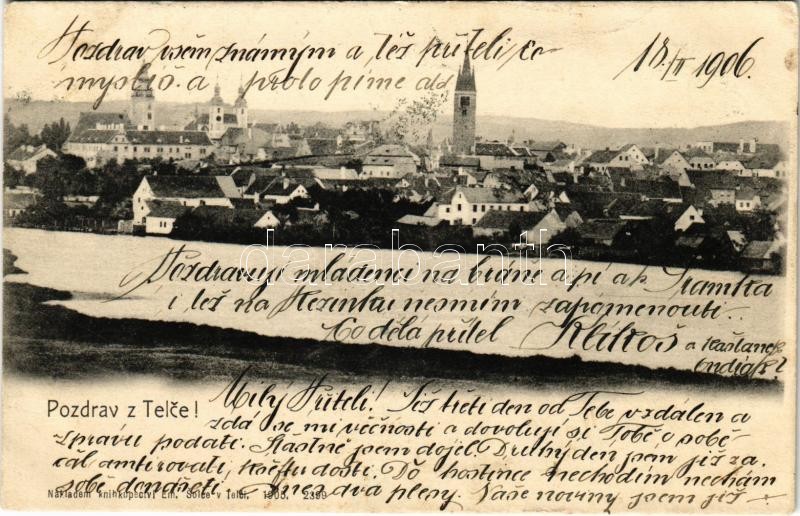 Pozdrav všem známým a též příteli
18./II 1906.
a prolo píme ald
darabanth
Pozdravuji mládenci na bráně a pí
i též na nesmím zapomenouti.
Co dělá přítel Klikoš a Kaštánek
Pozdrav z Telče!
Milý Příteli! Již třetí den od Tebe vzdálen a
zdá se mi věčností a dovoluji si Tobě o sobě
zprávu podati. Šťastně jsem dojel. Druhý den jsem již za-
čal amtirovati, dosti. Do hostince nechodím nechám
sobě donášeti. Dnes dva plesy. Vaše noviny jsem již
Nákladem knihkupectví Em. Šolce v Telči. 1905. 2399